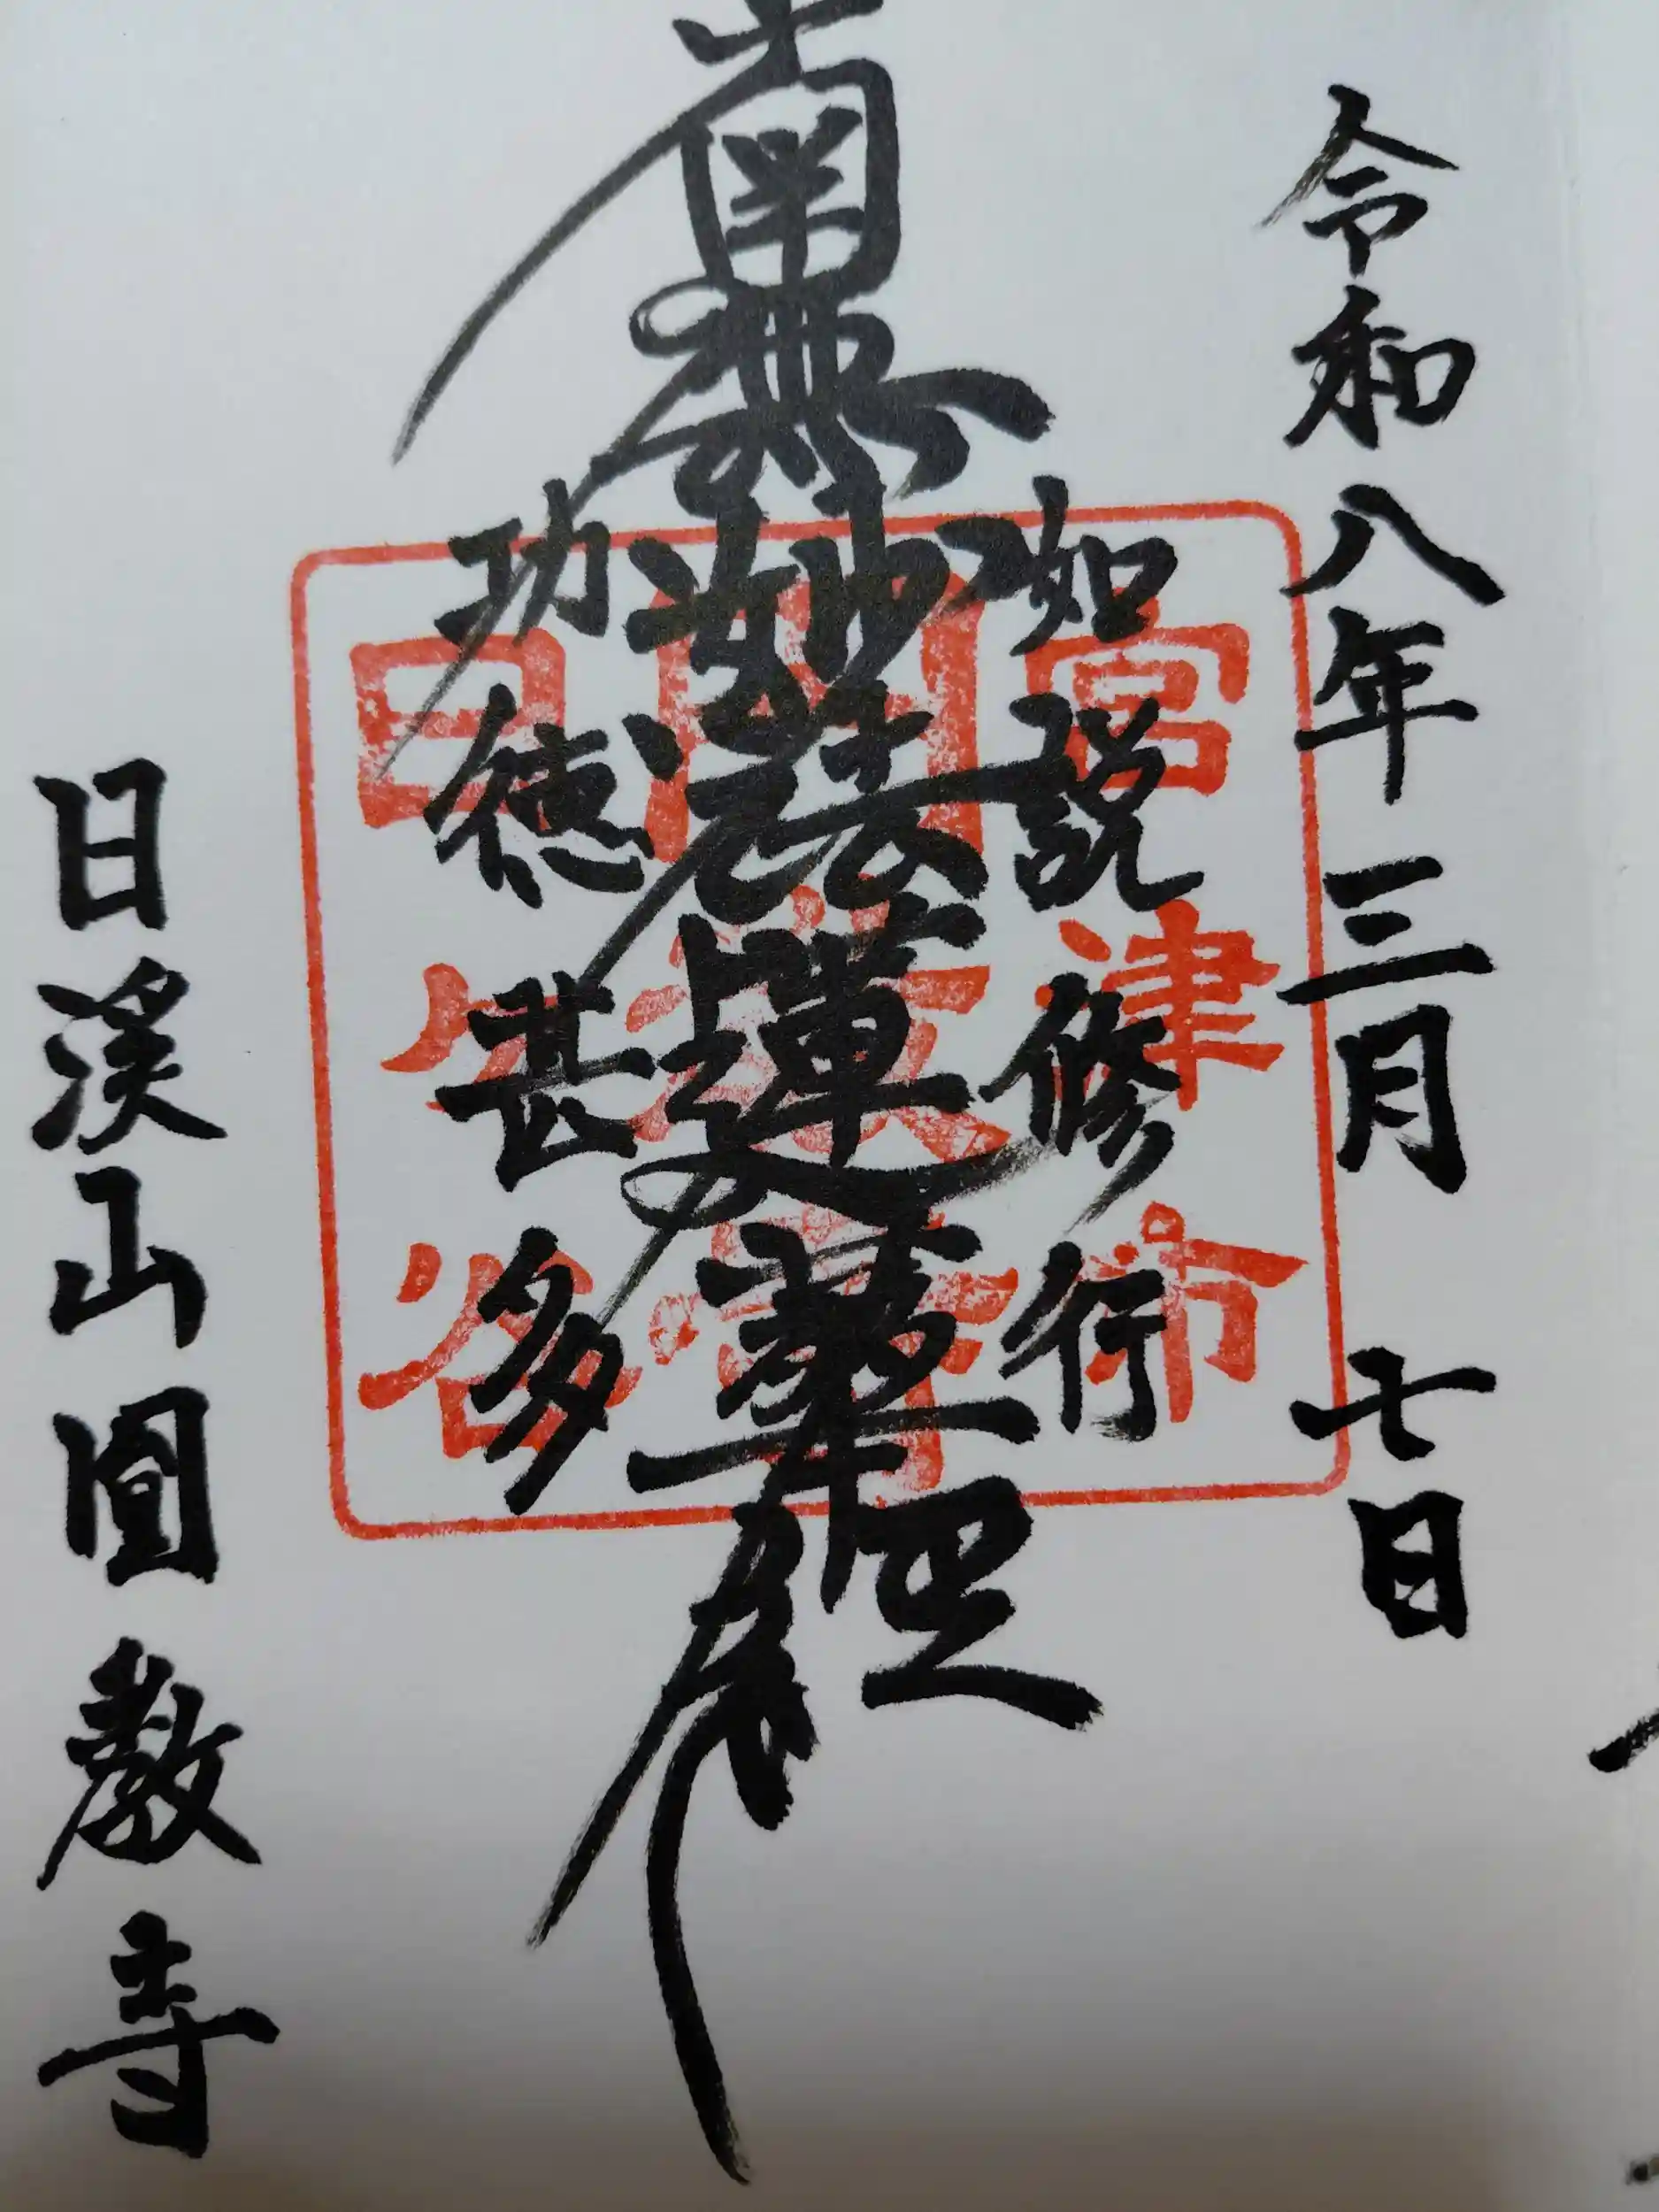 令和八年三月七日
如説修行
南無妙法蓮華経
功徳甚多
日溪山圓教寺
宮津市
日ヶ谷